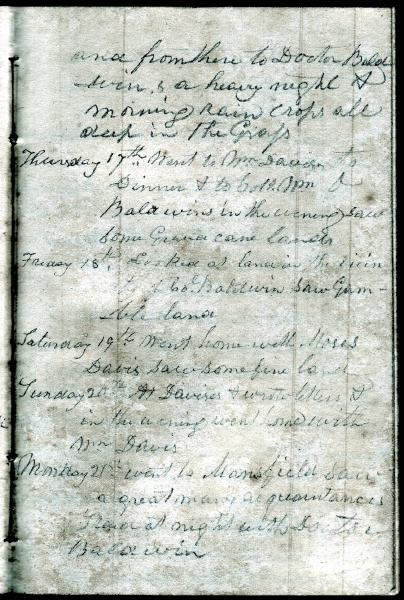 and from there to Doctor Bald
win, & a heavy night &
morning rain crops all
deep in the Grass
Thursday 17th. Went to Wm Davises to
Dinner & to Col. Wm
Baldwins in the evening saw
some Grand cane lands
Friday 18th. Looked at land in the vicin
ity of Col Baldwin saw Gum
ble land
Saturday 19th Went home with Moses
Davis saw some fine land
Sunday 20th At Davises & wrote letters &
in the evening went home with
Wm Davis
Monday 21st went to Mansfield saw
a great many acquaintances
at night with Doctor
Baldwin